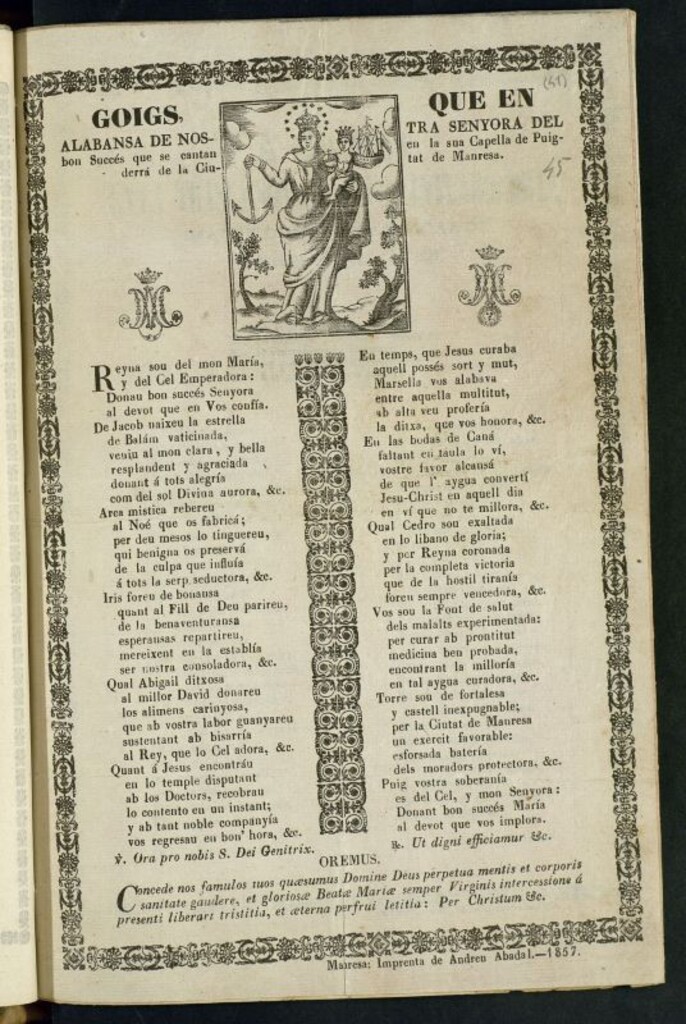 (41)
45
GOIGS, QUE EN
ALABANSA DE NOS- TRA SENYORA DEL
bon Succés que se cantan en la sua Capella de Puig-
derrá de la Ciu- tat de Manresa.
Reyna sou del mon María,
y del Cel Emperadora:
Donau bon succés Senyora
al devot que en Vos confia.
De Jacob naixeu la estrella
de Balám vaticinada,
veniu al mon clara, y bella
resplandent y agraciada
donant á tots alegría
com del sol Divina aurora, &c.
Arca mistica rebereu
al Noé que os fabricá;
per deu mesos lo tinguereu,
qui benigna os preservá
de la culpa que influía
á tots la serp seductora, &c.
Iris foreu de bonansa
quant al Fill de Deu parireu,
de la benaventuransa
esperansas repartireu,
mereixent en la establía
ser nostra consoladora, &c.
Qual Abigail ditxosa
al millor David donareu
los alimens carinyosa,
que ab vostra labor guanyareu
sustentant ab bisarría
al Rey, que lo Cel adora, &c.
Quant á Jesus encontráu
en lo temple disputant
ab los Doctors, recobrau
lo contento en un instant;
y ab tant noble companyía
vos regresau en bon' hora, &c.
℣. Ora pro nobis S. Dei Genitrix.
En temps, que Jesus curaba
aquell possés sort y mut,
Marsella vos alabava
entre aquella multitut,
ab alta veu profería
la ditxa, que vos honora, &c.
En las bodas de Caná
faltant en taula lo ví,
vostre favor alcansá
de que l' aygua convertí
Jesu-Christ en aquell dia
en ví que no te millora, &c.
Qual Cedro sou exaltada
en lo libano de gloria;
y per Reyna coronada
per la completa victoria
que de la hostil tiranía
foreu sempre vencedora, &c.
Vos sou la Font de salut
dels malalts experimentada:
per curar ab prontitut
medicina ben probada,
encontrant la milloría
en tal aygua curadora, &c.
Torre sou de fortalesa
y castell inexpugnable;
per la Ciutat de Manresa
un exercit favorable:
esforsada batería
dels moradors protectora, &c.
Puig vostra soberanía
es del Cel, y mon Senyora:
Donant bon succés María
al devot que vos implora.
℟. Ut digni efficiamur &c.
OREMUS.
Concede nos famulos tuos quæsumus Domine Deus perpetua mentis et corporis
sanitate gaudere, et gloriosæ Beatæ Mariæ semper Virginis intercessione á
presenti liberari tristitia, et æterna perfrui letitia: Per Christum &c.
Manresa: Imprenta de Andreu Abadal.—1857.